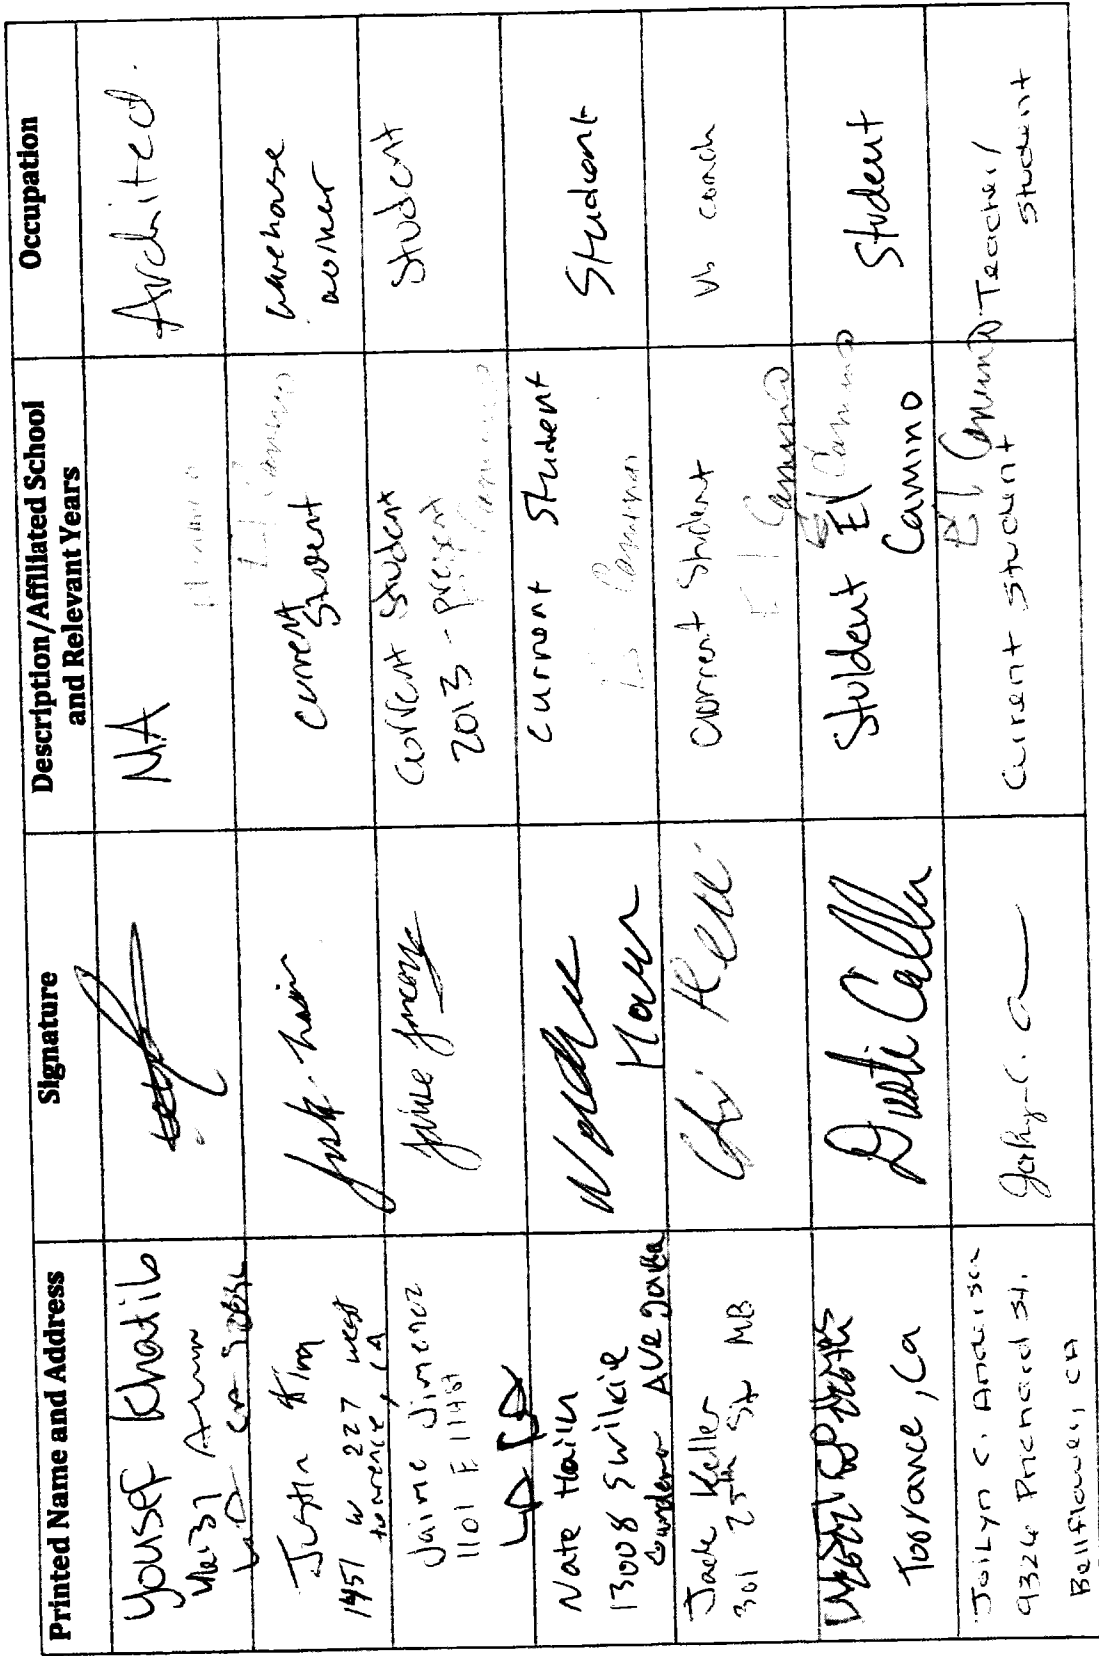 Printed Name and Address
Signature
Description/Affiliated School
and Relevant Years
Occupation
Yousef Khatib
NA
Architect.
Justin King
1451 W 227 west
torrence, CA
current
student
El Camino
warehouse
worker
Jaime Jimenez
1101 E 114st
LA CA
Current Student
2013 - present
Student
Nate Hailu
13008 S Wilkie
Ave
Current Student
El Camino
Student
Jack Keller
301 25th St MB
Current Student
El Camino
Vb coach
Torrance, Ca
Student El Camino
Camino
Student
JoiLyn C. Anderson
9326 Prichard St.
Bellflower, CA
El Camino
Current student
Teacher/
Student